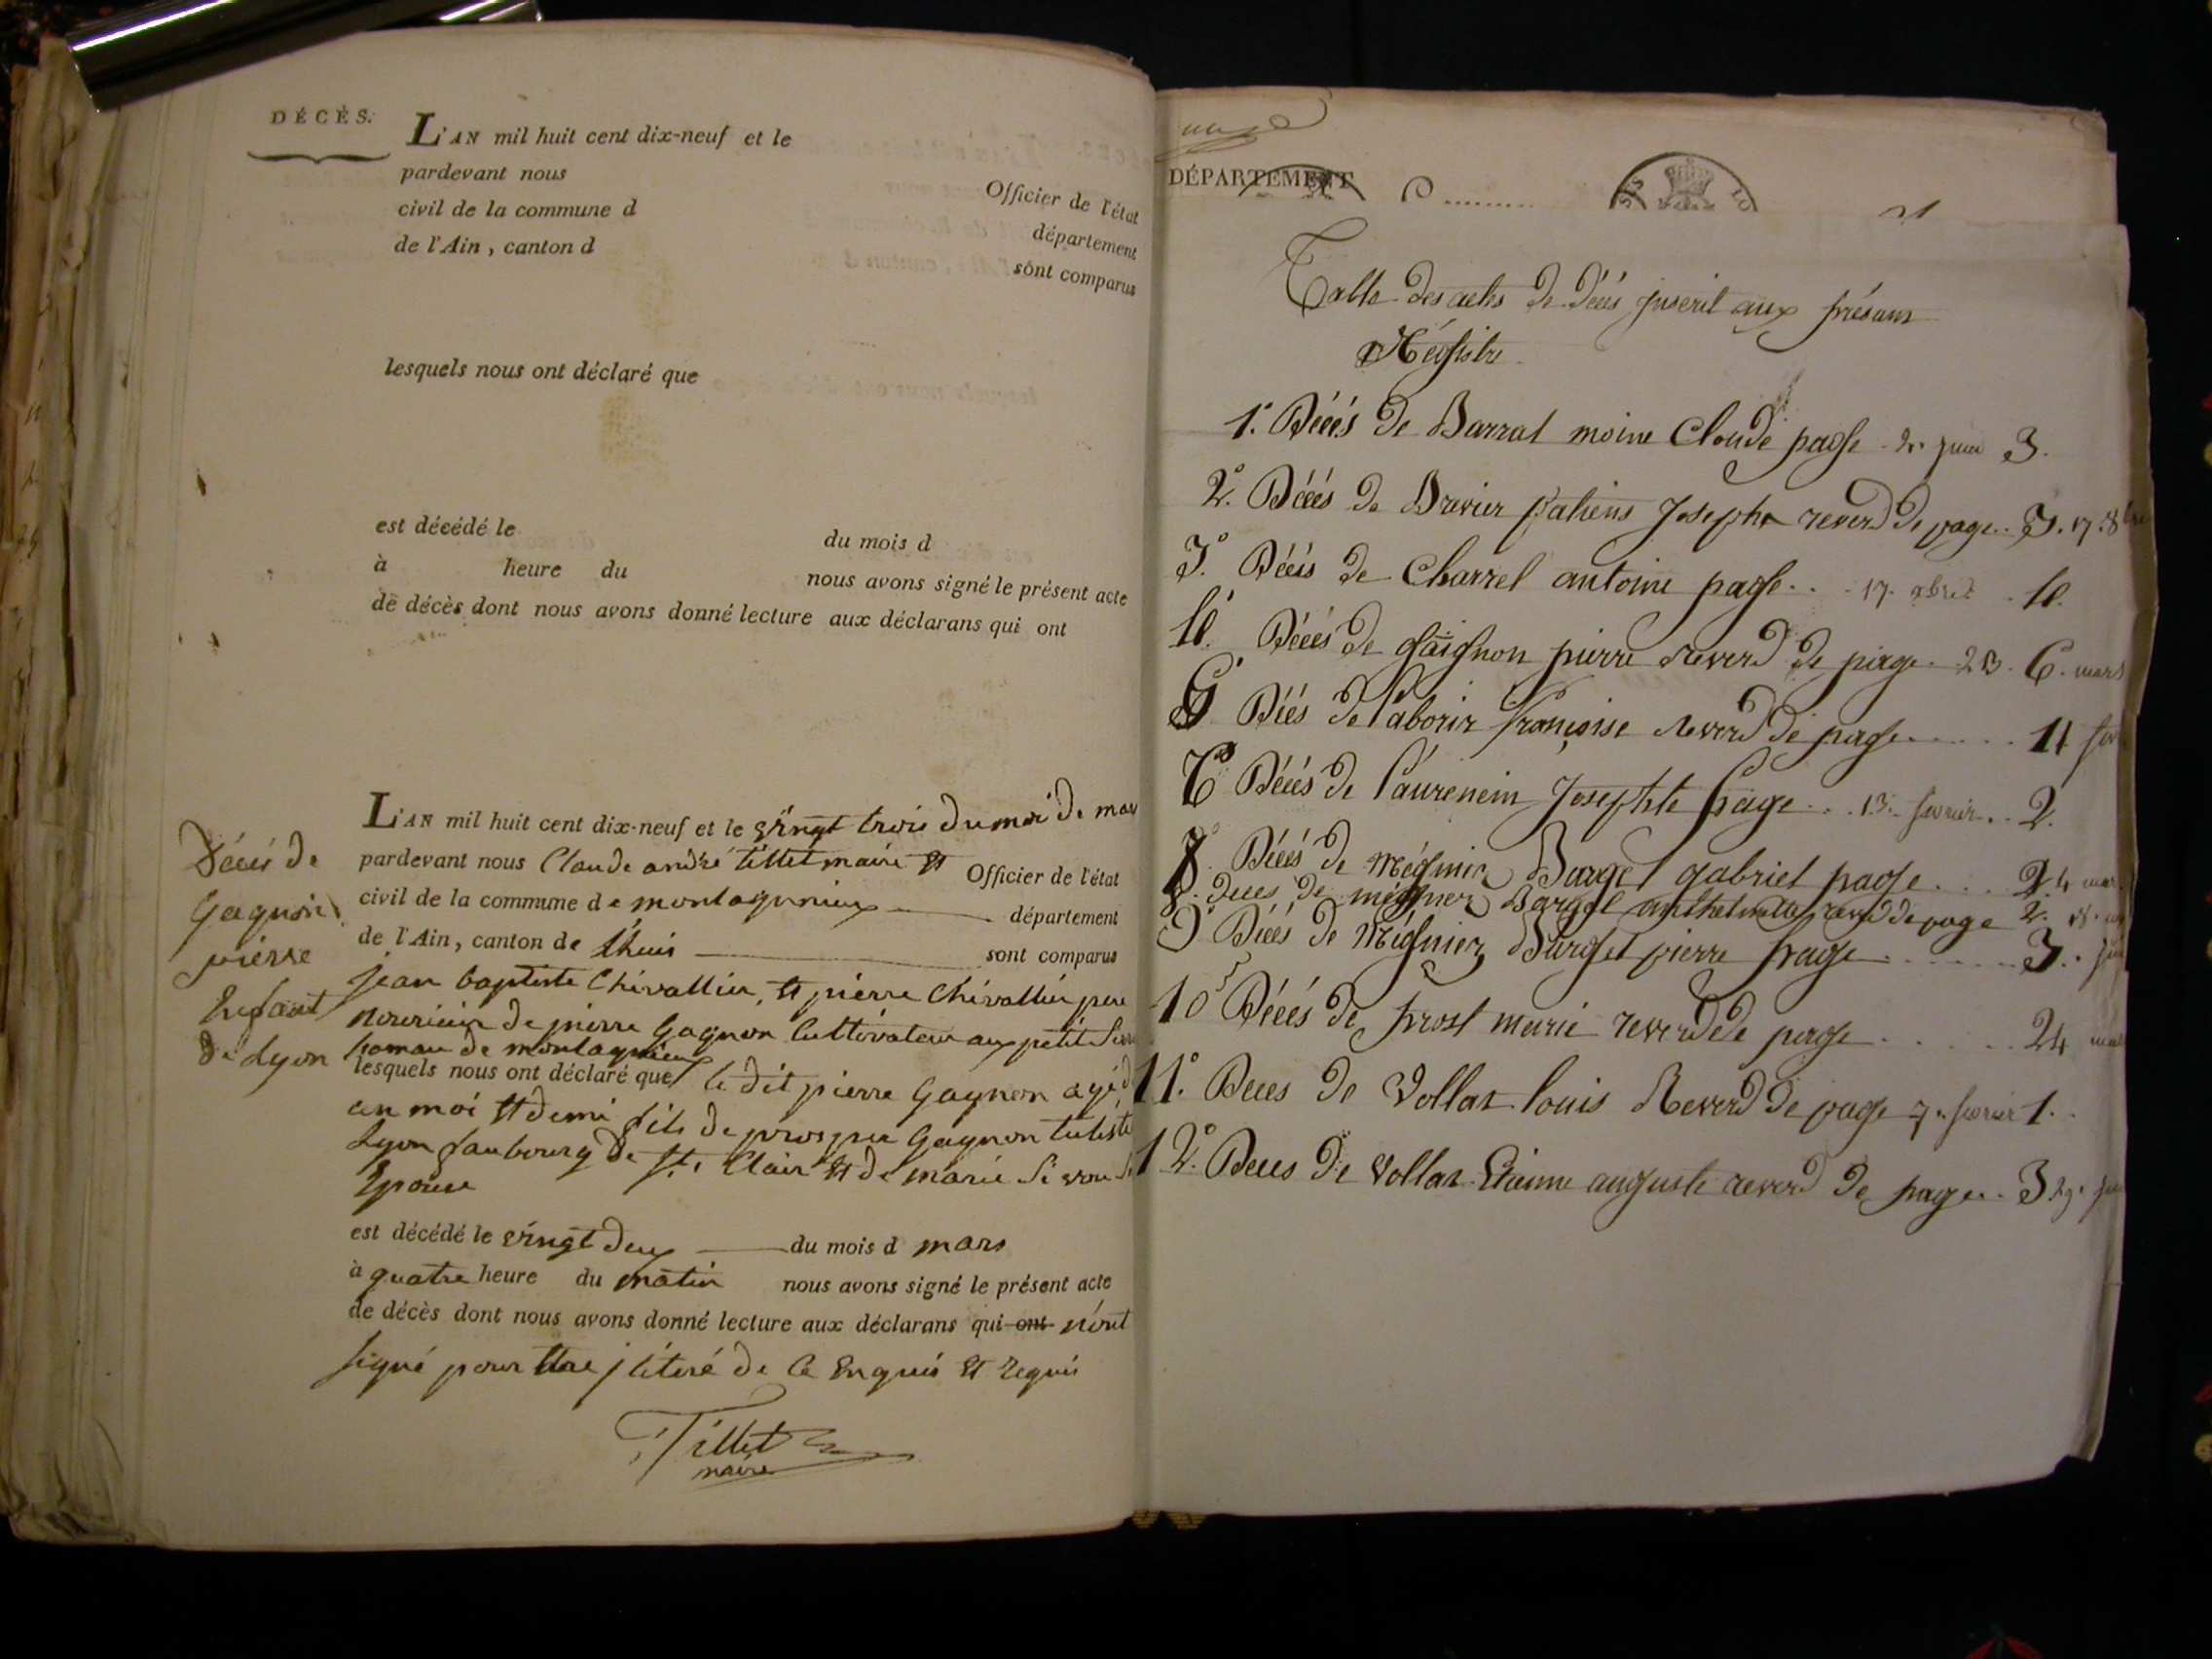 DÉCÈS.
L'AN mil huit cent dix-neuf et le
pardevant nous
Officier de l'état
civil de la commune d
département
de l'Ain, canton d
sont comparus
lesquels nous ont déclaré que
est décédé le du mois d
à heure du nous avons signé le présent acte
de décès dont nous avons donné lecture aux déclarans qui ont
Décés de
Gagnon
pierre
Enfant
de Lyon
L'AN mil huit cent dix-neuf et le vingt trois du moi de mar
pardevant nous Claude andré tillet maire et Officier de l'état
civil de la commune de montagnieux département
de l'Ain, canton de lhuis sont comparus
jean baptiste Chevallier, et pierre Chevallier pere
nouricier de pierre Gagnon Cultivateur au petit
hamau de montagnieux
lesquels nous ont déclaré que le dit pierre Gagnon agé d
un moi et demi fils de prosper Gagnon
Lyon faubourg de St. Clair et de marie
Epouse
est décédé le vingt deux du mois d mars
à quatre heure du matin nous avons signé le présent acte
de décès dont nous avons donné lecture aux déclarans qui ont n'ont
signé pour être jlitéré de Ce Enquis et Requis
Tillet
maire
DÉPARTEMENT D
Table des actes de Décés jnscrit aux présant
Régistre
1° Décés de Barrat moine Claude page 2. juin 3.
2° Décés de Brevier patiens Josephe reverd de page.. 3. 17. 8bre
3° Décés de Charrel antoine page... 17. xbre 4.
4° Décés de gaignon pierre reverd de page 23. 6. mars
Décés de laborir françoise reverd de page..... 11
6° Décés de laurencin Josephte page... 13. fevrier.. 2.
7° Décés de Mégnier Barget gabriel page.... 2. 4 mar
8. deces de mégnier Barget anthelmette reverd de page 2. 8.
9° Décés de Mégnier Barget pierre page....... 3.
10° Décés de prost marie reverd de page ...... 24
11° Deces de Vollat louis Reverd de page 7. fevrier 1.
12° Deces de Vollat Etienne auguste reverd de page.. 3. 29.